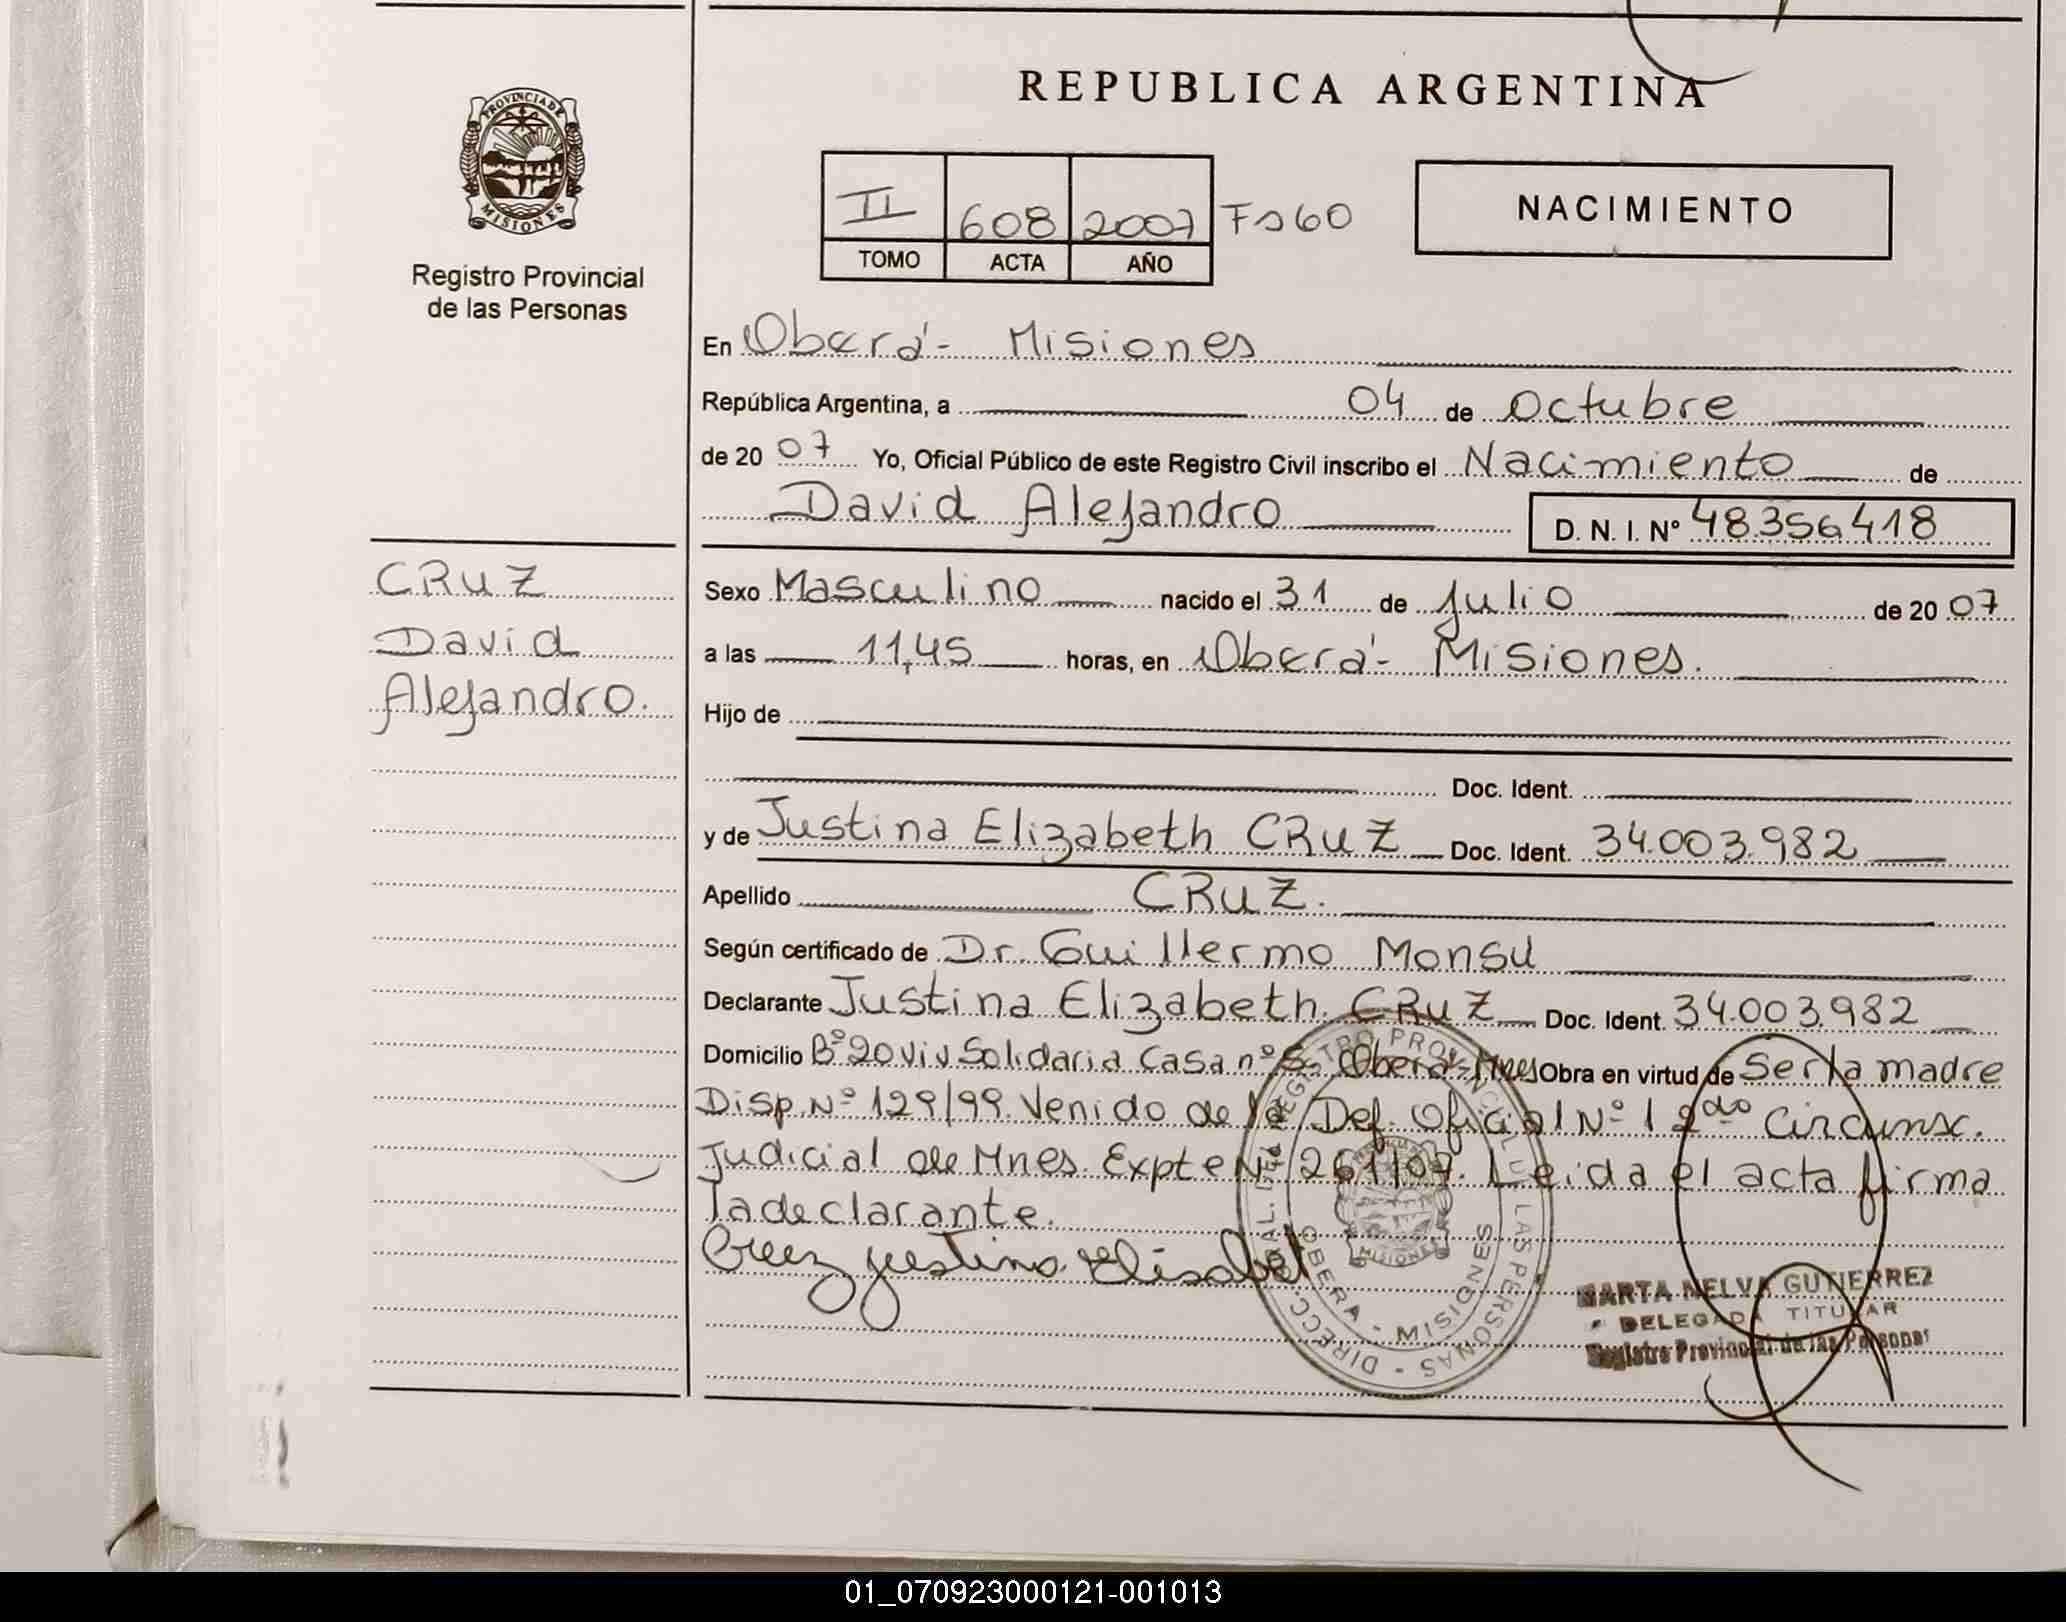 REPUBLICA ARGENTINA
PROVINCIA DE
MISIONES
Registro Provincial
de las Personas
II 608 2007 Fs 60
TOMO ACTA AÑO
NACIMIENTO
En Oberá - Misiones
República Argentina, a 04 de Octubre
de 20 07 Yo, Oficial Público de este Registro Civil inscribo el Nacimiento de
David Alejandro D. N. I. Nº 48.356.418
CRUZ
David
Alejandro.
Sexo Masculino nacido el 31 de Julio de 20 07
a las 11,45 horas, en Oberá - Misiones.
Hijo de
Doc. Ident.
y de Justina Elizabeth CRUZ Doc. Ident. 34.003.982
Apellido CRUZ.
Según certificado de Dr. Guillermo Monsu
Declarante Justina Elizabeth CRUZ Doc. Ident. 34.003.982
Domicilio Bº 20 Viv Solidaria Casa nº 5 - Oberá - Mnes Obra en virtud de Ser la madre
Disp. Nº 129/99. Venido de la Def. Oficial Nº 1 2do Circunsc.
Judicial de Mnes. Expte Nº 261/07. Leida el acta firma
la declarante.
Cruz justina Elisabet
DIRECC. GRAL. DEL REGISTRO PROVINCIAL DE LAS PERSONAS
OBERA - MISIONES
MISIONES
MARTA NELVA GUTIERREZ
DELEGADA TITULAR
Registro Provincial de las Personas
01_070923000121-001013